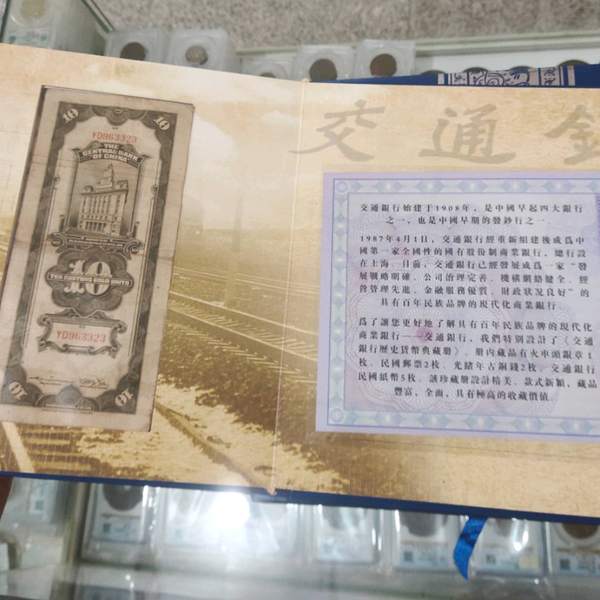 10
10
YD963323
THE
CENTRAL BANK
OF CHINA
10
TEN CUSTOMS GOLD UNITS
YD963323
10
10
交通銀
交通銀行始建于1908年，是中國早起四大銀行
之一，也是中國早期的發鈔行之一
1987年4月1日，交通銀行經重新組建後成爲中
國第一家全國性的國有股份制商業銀行，總行設
在上海。目前，交通銀行已經發展成爲一家“發
展戰略明確、公司治理完善、機構網絡健全、經
營管理先進、金融服務優質、財政狀况良好”的
具有百年民族品牌的現代化商業銀行。
爲了讓您更好地了解具有百年民族品牌的現代化
商業銀行——交通銀行，我們特别設計了《交通
銀行歷史貨幣典藏册》。册内藏品有火車頭銀章1
枚、民國郵票2枚、光緒年古銅錢2枚、交通銀行
民國紙幣5枚。該珍藏册設計精美、款式新穎、藏品
豐富、全面，具有極高的收藏價值。